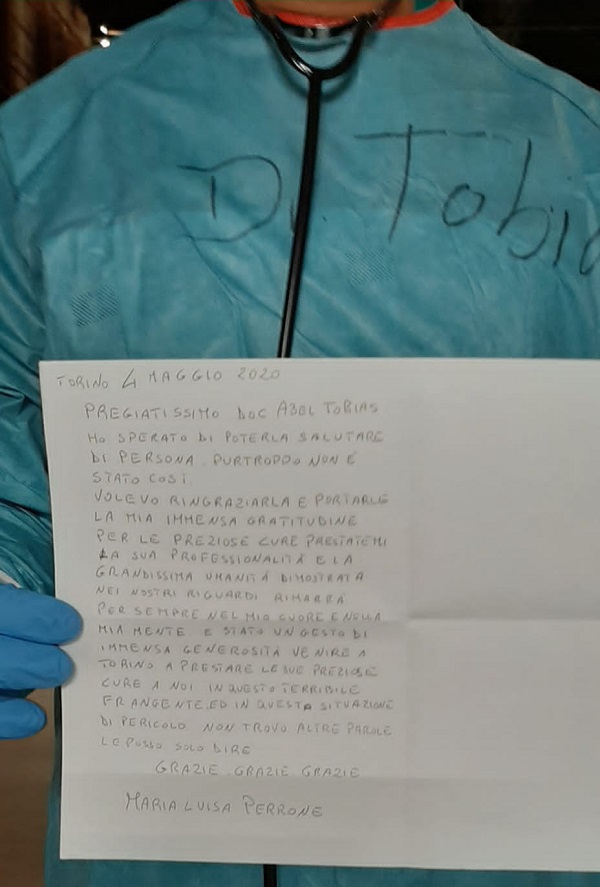 Dr. Tobia
TORINO 4 MAGGIO 2020
PREGIATISSIMO DOC ABEL TOBIAS
HO SPERATO DI POTERLA SALUTARE
DI PERSONA. PURTROPPO NON È
STATO COSÌ.
VOLEVO RINGRAZIARLA E PORTARLE
LA MIA IMMENSA GRATITUDINE
PER LE PREZIOSE CURE PRESTATEMI
LA SUA PROFESSIONALITÀ E LA
GRANDISSIMA UMANITÀ DIMOSTRATA
NEI NOSTRI RIGUARDI RIMARRÀ
PER SEMPRE NEL MIO CUORE E NELLA
MIA MENTE. È STATO UN GESTO DI
IMMENSA GENEROSITÀ VENIRE A
TORINO A PRESTARE LE SUE PREZIOSE
CURE A NOI IN QUESTO TERRIBILE
FRANGENTE, ED IN QUESTA SITUAZIONE
DI PERICOLO. NON TROVO ALTRE PAROLE
LE POSSO SOLO DIRE
GRAZIE. GRAZIE GRAZIE
MARIA LUISA PERRONE